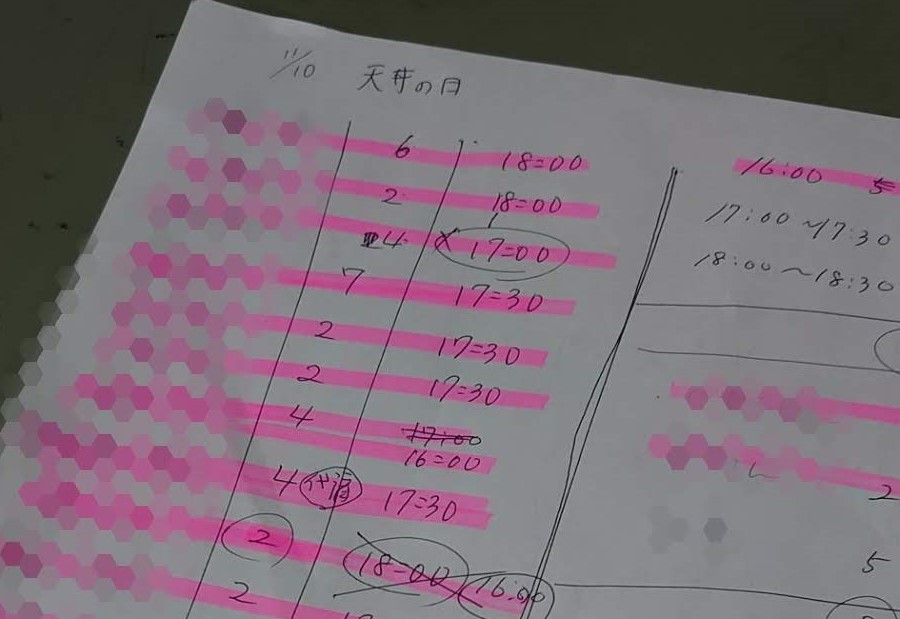 11/10 天井の日
6 18=00
2 18=00
4 × 17=00
7 17=30
2 17=30
2 17=30
4 17:00
16=00
4 17=30
2 18=00 16:00
2
16:00 5
17:00 ~17:30
18:00 ~18:30
2
5